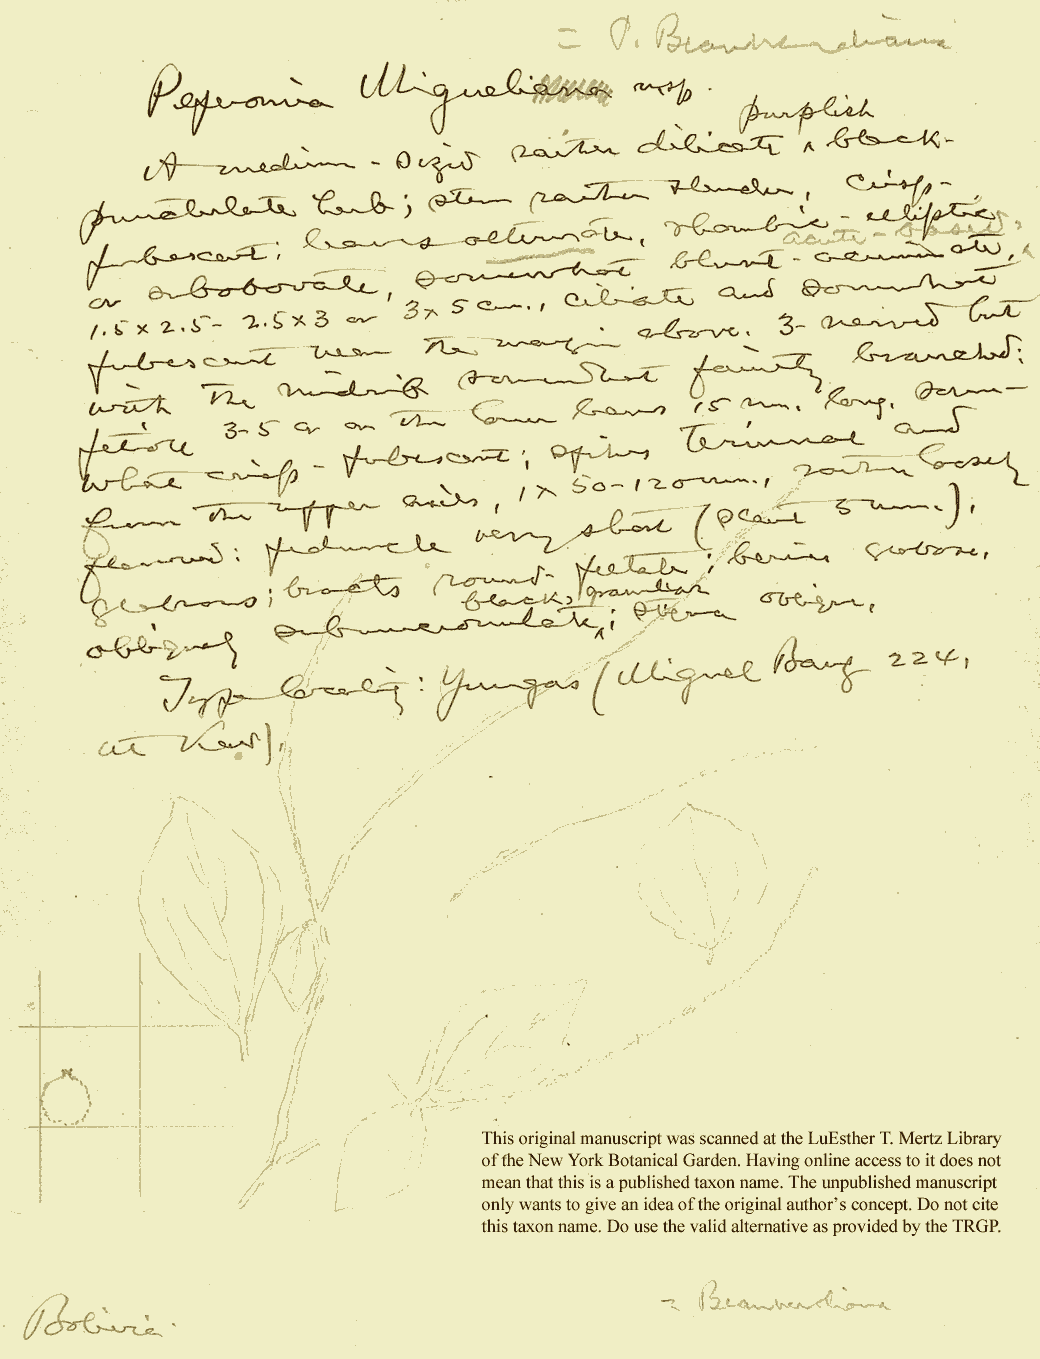 = P. Beauverdiana
Peperomia Migueliana n sp.
purplish
A medium-sized rather delicate ‸ black-
punctulate herb; stem rather slender, crisp-
pubescent; leaves alternate, rhombic-elliptic
acute-based,
or subobovate, somewhat blunt-acuminate, ‸
1.5 x 2.5 - 2.5 x 3 or 3 x 5 cm., ciliate and somewhat
pubescent near the margin above. 3-nerved but
with the midrib somewhat faintly branched;
petiole 3-5 or on the lower leaves 15 mm. long, some-
what crisp-pubescent; spikes terminal and
from the upper axils, 1 x 50-120 mm., rather loosely
flowered; peduncle very short (scant 5 mm.),
glabrous; bracts round-peltate; berries globose,
black, granular
obliquely submucronulate ‸; stigma oblique.
Type locality: Yungas (Miguel Bang 224,
at Kew).
This original manuscript was scanned at the LuEsther T. Mertz Library
of the New York Botanical Garden. Having online access to it does not
mean that this is a published taxon name. The unpublished manuscript
only wants to give an idea of the original author's concept. Do not cite
this taxon name. Do use the valid alternative as provided by the TRGP.
= Beauverdiana
Bolivia.